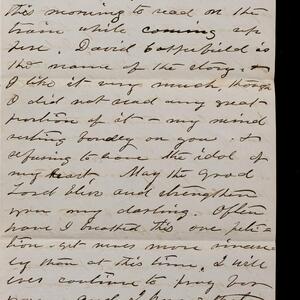 this morning to read on the
train while coming up
here. David Copperfield is
the name of the story, &
I like it very much, though
I did not read any great
portion of it - my mind
resting fondly on you, &
refusing to leave the idol of
my heart. May the Good
Lord bless and strengthen
you my darling. Often
have I breathed this one peti-
tion - yet never more sincere-
ly than at this time. I will
ever continue to pray for